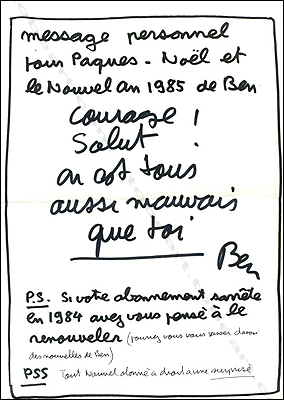 message personnel
pour Paques - Noël et
le Nouvel An 1985 de Ben
courage !
Salut !
on est tous
aussi mauvais
que toi
Ben
P.S. Si votre abonnement sarrête
en 1984 avez vous pensé à le
renouveler (pourrez vous vous passer
des nouvelles de Ben)
PSS Tout Nouvel donné a droit a une surprise